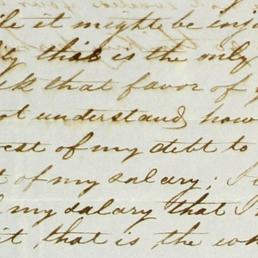 it might be inj
that is the only
that favor of y
not understand, how
rest of my debt to
of my salary; I
my salary that I
it, that is the